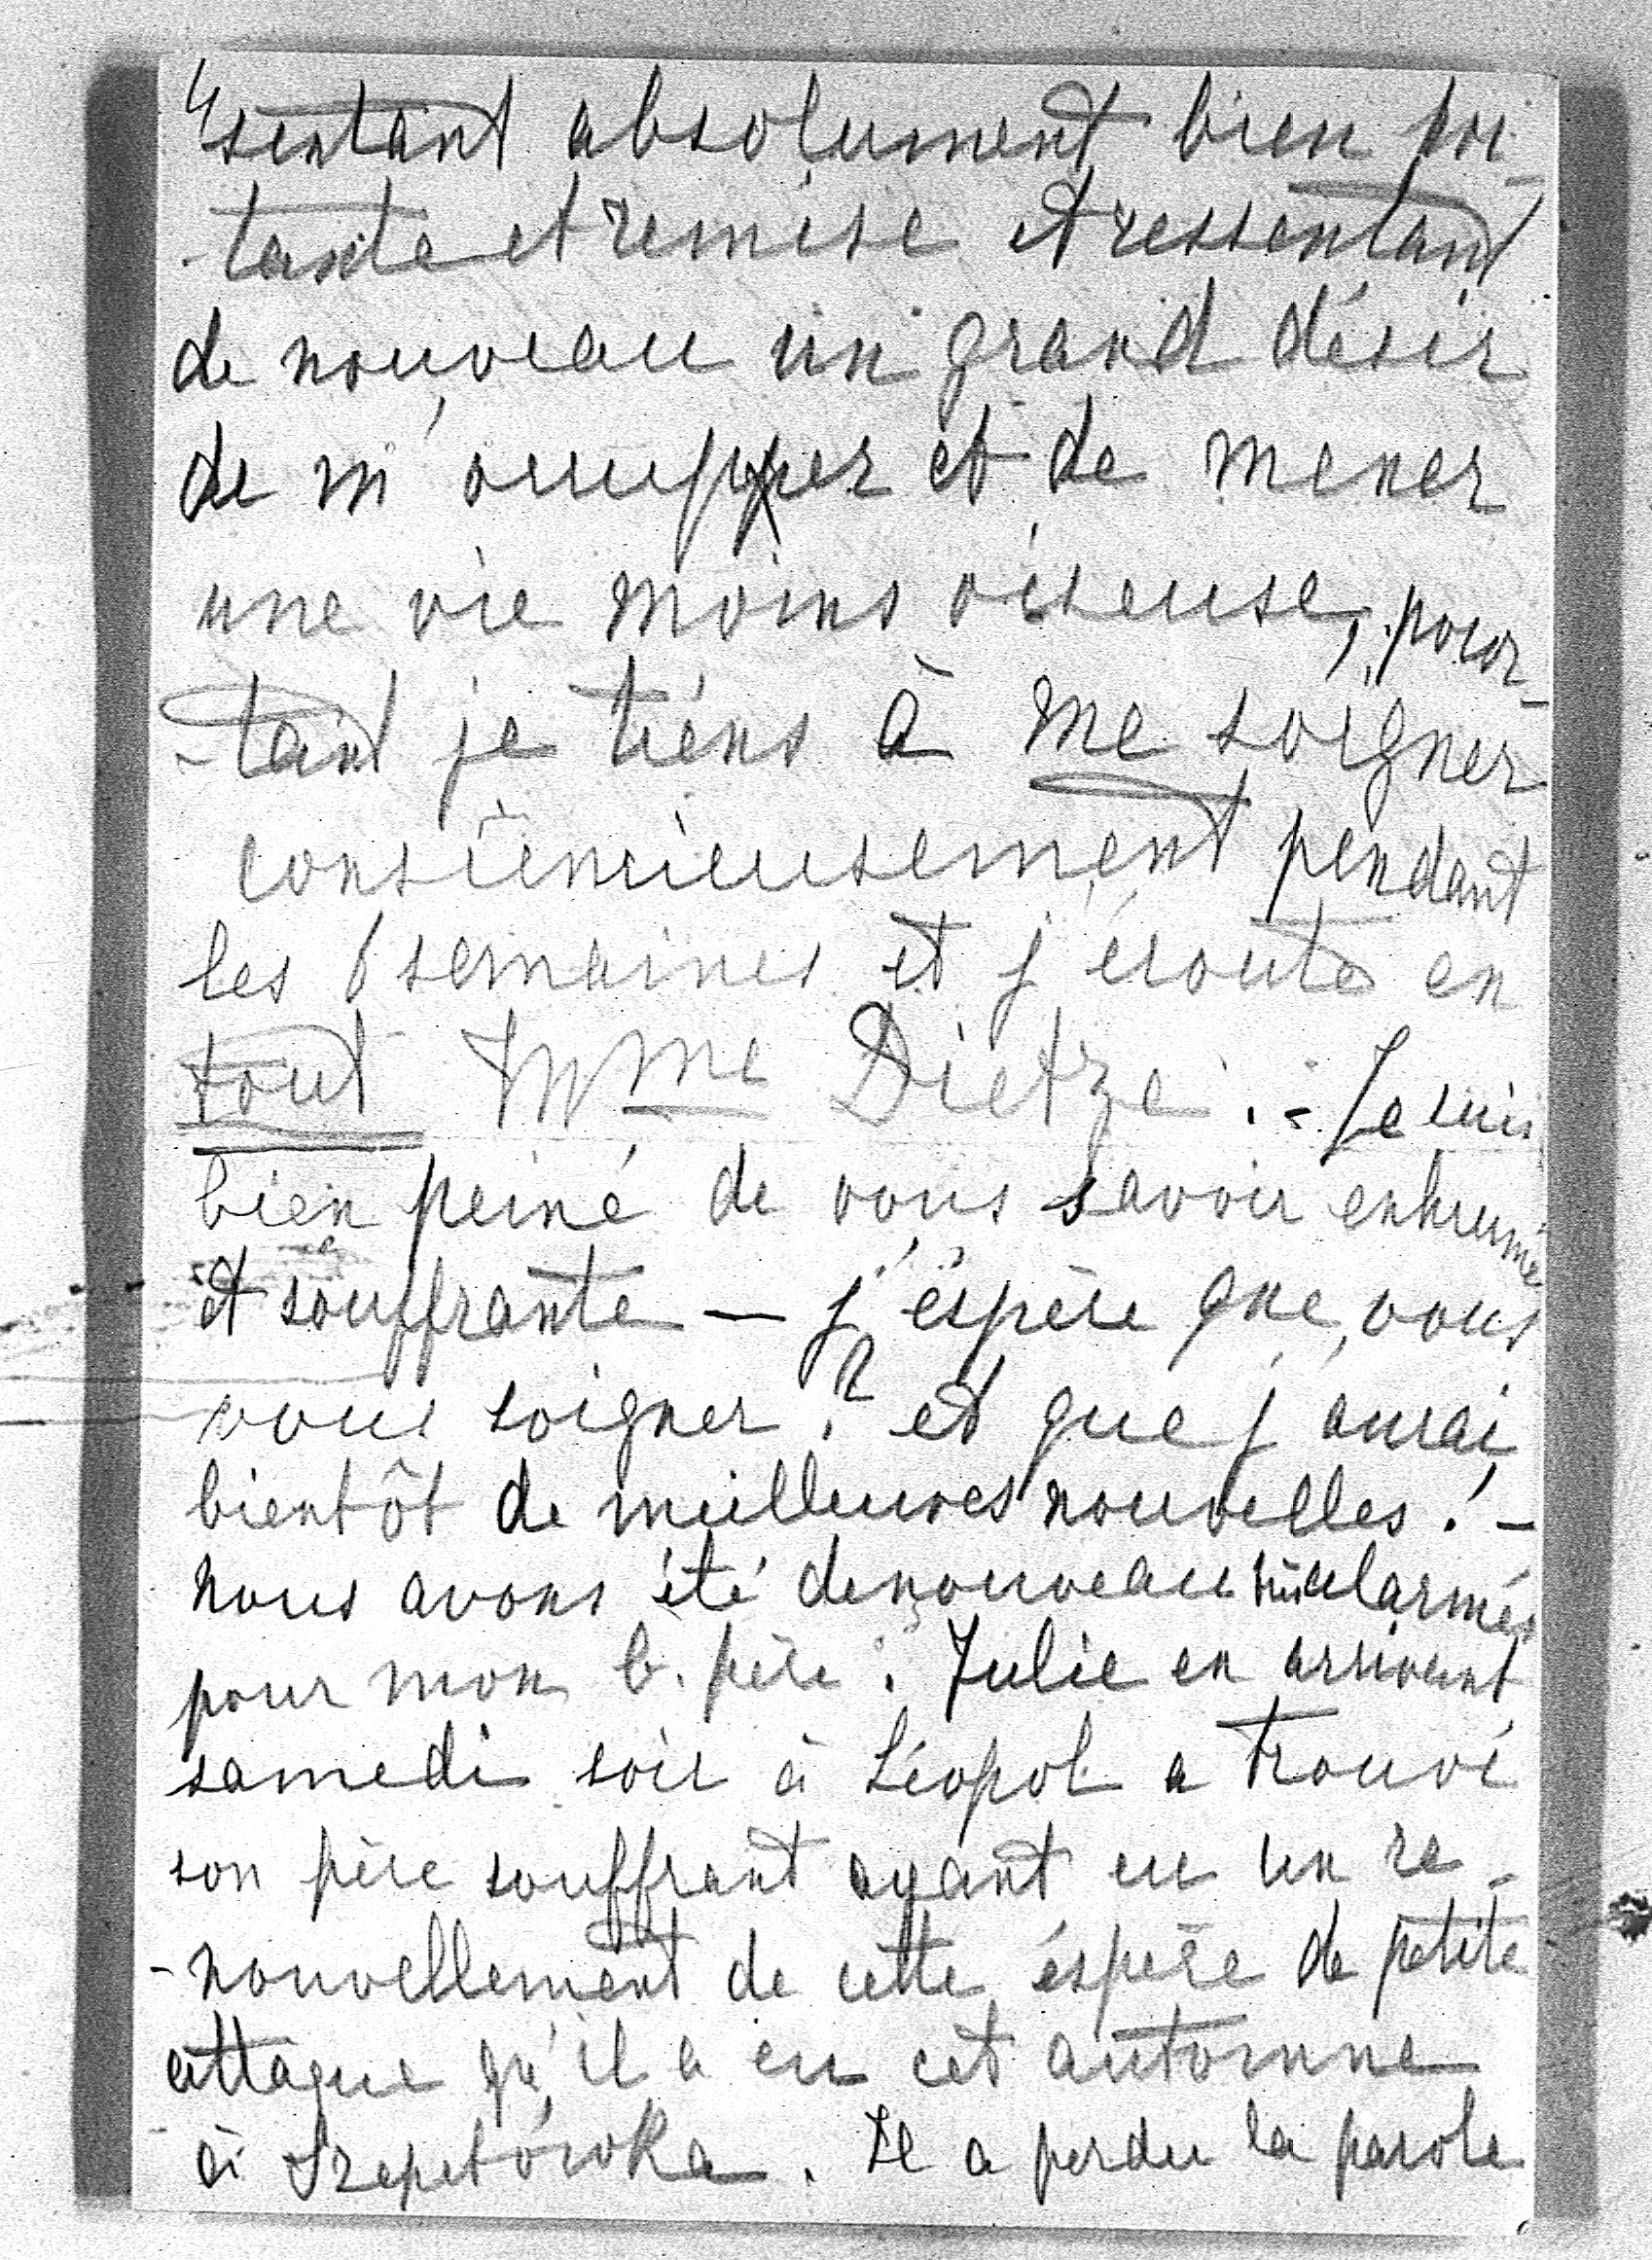 4
sentant absolument bien por-
-tante et remise et ressentant
de nouveau un grand désir
de m'occupper et de mener
une vie moins oiseuse, pour-
-tant je tiens à me soigner
consciencieusement pendant
les 6 semaines et j'écoute en
tout Mme Dietze. - Je suis
bien peiné de vous savoir enhrumé
et souffrante — j'éspère que vous
vous soigner? et que j'aurai
bientôt de meilleures nouvelles! -
nous avons été de nouveau alarmés
pour mon b. père. Julie en arrivant
samedi soir à Léopol a trouvé
son père souffrant ayant eu un re-
-nouvellement de cette éspèce de petite
attaque qu'il a eu cet automne
à Szepetówka. Il a perdu la parole